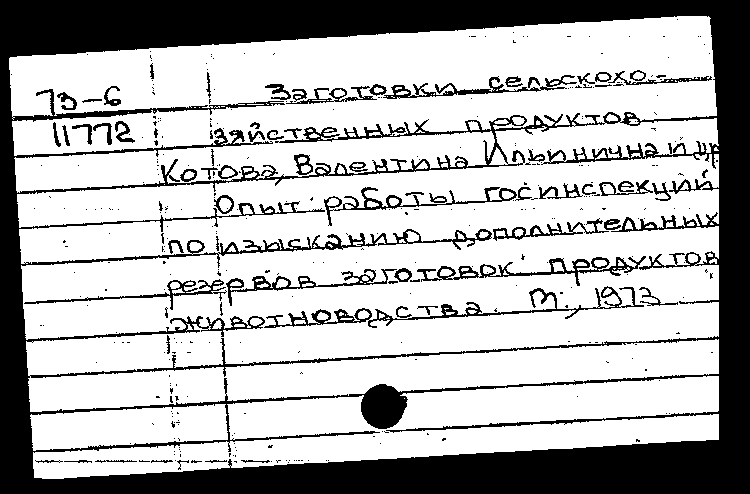 73-6 Заготовки сельскохо-
11772 зяйственных продуктов
Котова, Валентина Ильинична и др
Опыт работы госинспекций
по изысканию дополнительных
резервов заготовок продуктов
животноводства. М., 1973